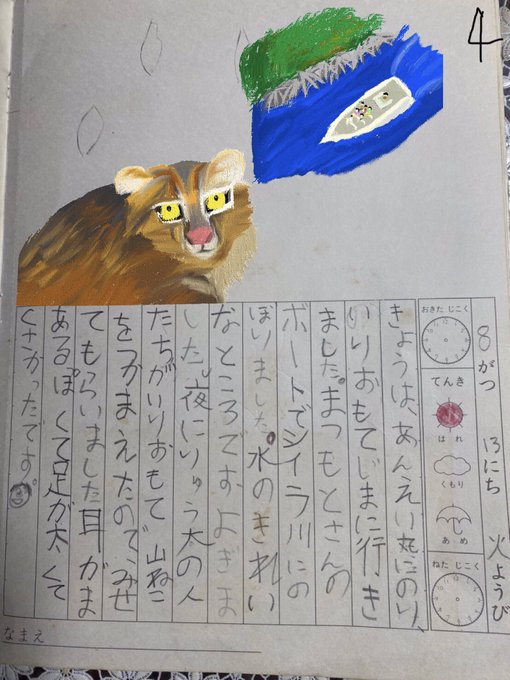 4
8がつ 13にち 火ようび
おきた じこく
てんき
はれ
くもり
あめ
ねた じこく
きょうは、あんえい丸にのり、
いりおもてじまに行き
ました。まつもとさんの
ボートでシイラ川にの
ぼりました。水のきれい
なところです。よぎま
した。夜にりゅう大の人
たちがいりおもて山ねこ
をつかまえたので、みせ
てもらいました耳がま
あるぽくて足が太くて
くさかったです。
なまえ